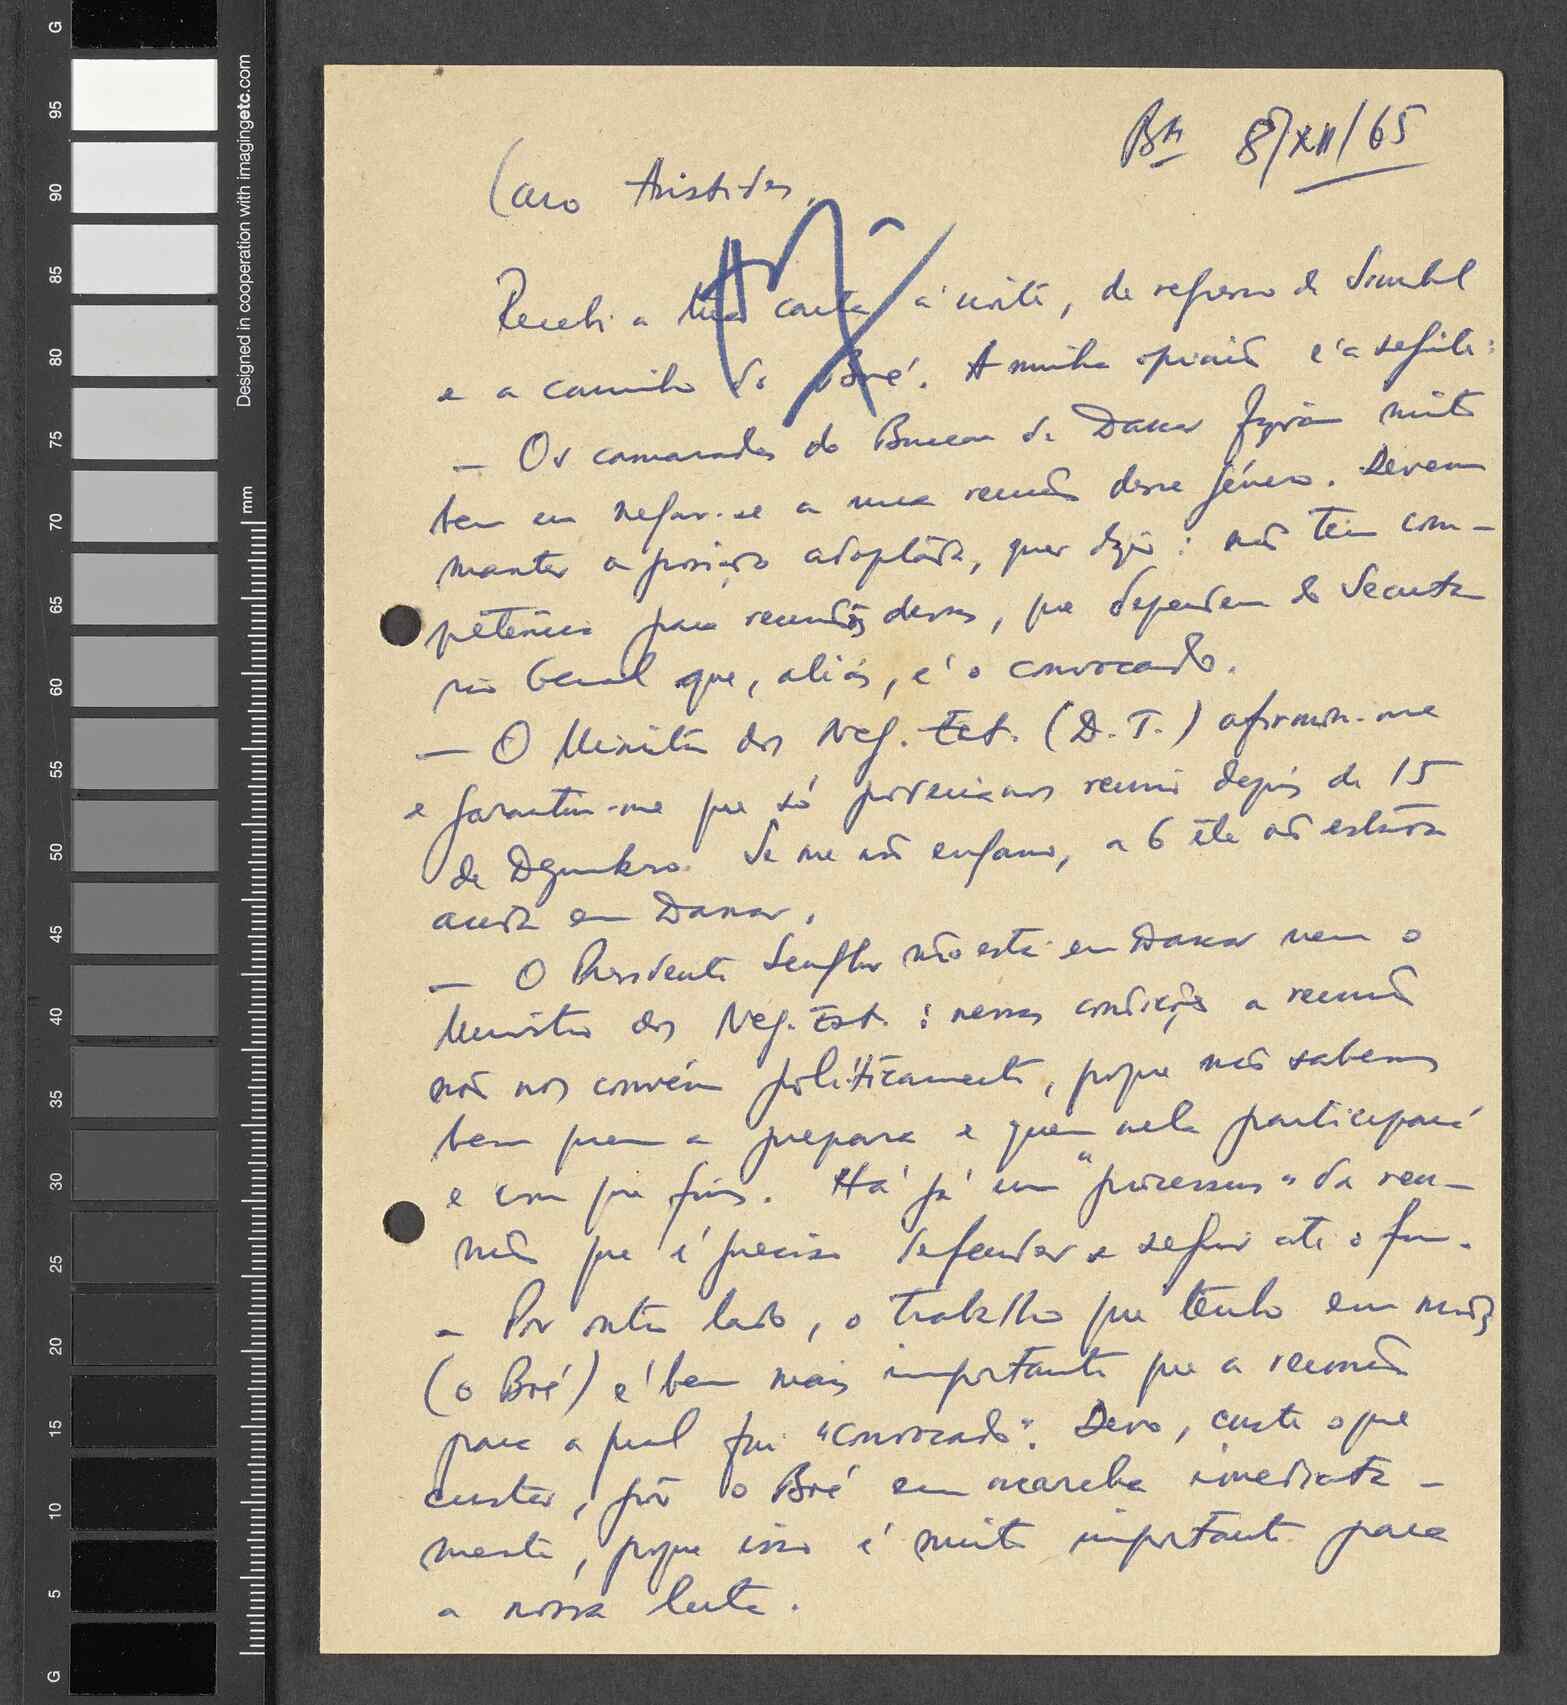 Bké 8/XII/65
Caro Aristides,
Recebi a tua carta à noite, de regresso de Simbel
e a caminho do Boé. A minha opinião é a seguinte:
— Os camaradas do Bureau de Dakar fizeram muito
bem em negar-se a uma reunião desse género. Devem
manter a posição adoptada, quer dizer: não têm com-
petência para reuniões dessas, que dependem do Secretá-
rio Geral que, aliás, é o convocado.
— O Ministro dos Neg. Est. (D. T.) afirmou-me
e garantiu-me que só poderíamos reunir depois de 15
de Dezembro. Se me não engano, a 6 êle não estava
ainda em Dakar.
— O Presidente Senghor não está em Dakar nem o
Ministro dos Neg. Est.: nessas condições a reunião
não nos convém politicamente, porque não sabemos
bem quem a prepara e quem nela participará
e com que fins. Há já um "processus" da reu-
nião que é preciso defender e seguir até o fim.
— Por outro lado, o trabalho que tenho em mãos
(o Boé) é bem mais importante que a reunião
para a qual fui "convocado". Devo, custe o que
custar, pôr o Boé em marcha imediata-
mente, porque isso é muito importante para
a nossa luta.
G
95
90
85
80
75
70
65
60
55
50
45
40
35
30
25
20
15
10
5
G
Designed in cooperation with imagingetc.com
mm